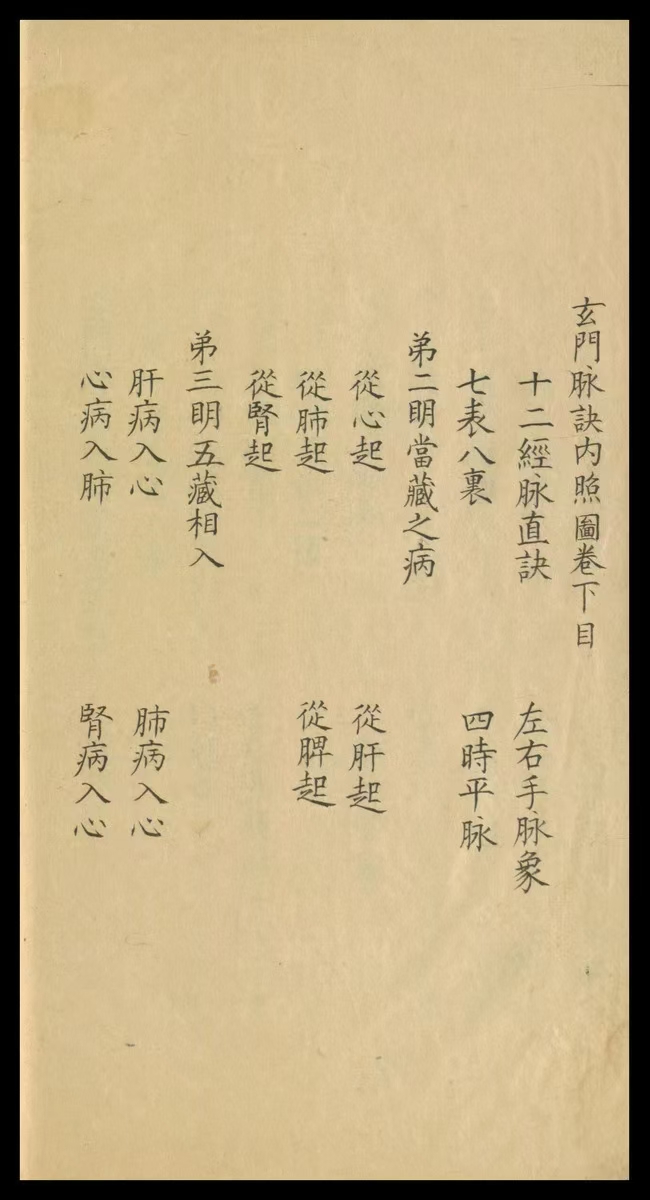 玄門脉訣内照圖卷下目
十二經脉直訣 左右手脉象
七表八裏 四時平脉
弟二明當藏之病
從心起 從肝起
從肺起 從脾起
從腎起
弟三明五藏相入
肝病入心 肺病入心
心病入肺 腎病入心